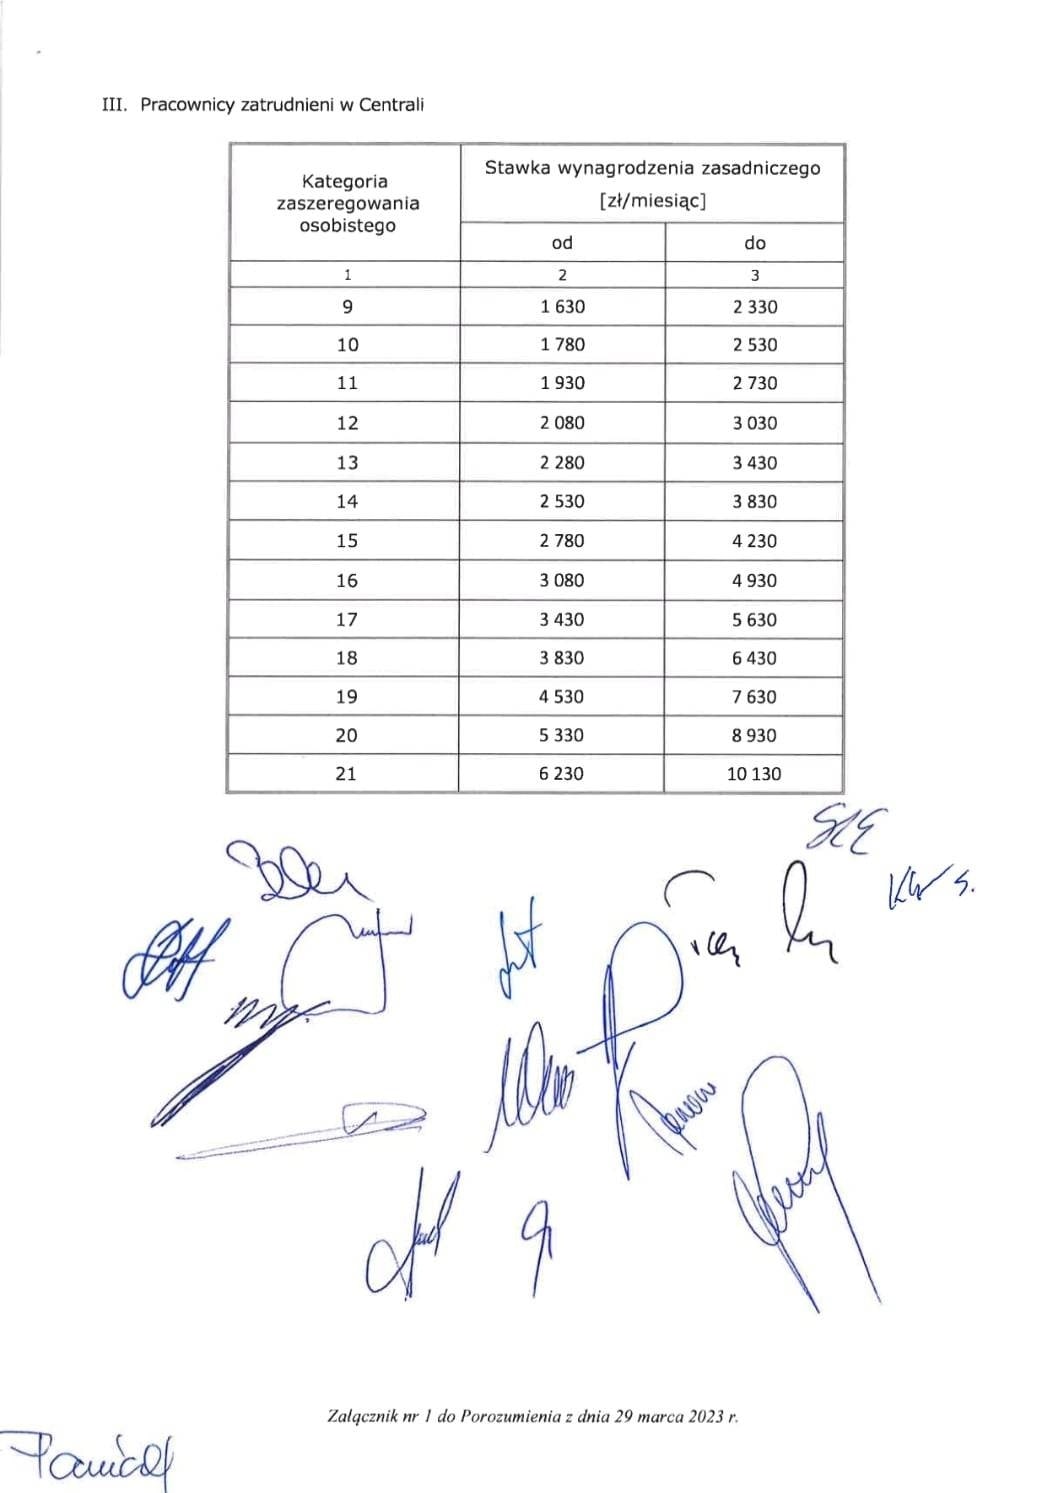 III. Pracownicy zatrudnieni w Centrali
Kategoria zaszeregowania osobistego
Stawka wynagrodzenia zasadniczego [zł/miesiąc]
od do
1 2 3
9 1 630 2 330
10 1 780 2 530
11 1 930 2 730
12 2 080 3 030
13 2 280 3 430
14 2 530 3 830
15 2 780 4 230
16 3 080 4 930
17 3 430 5 630
18 3 830 6 430
19 4 530 7 630
20 5 330 8 930
21 6 230 10 130
Załącznik nr 1 do Porozumienia z dnia 29 marca 2023 r.